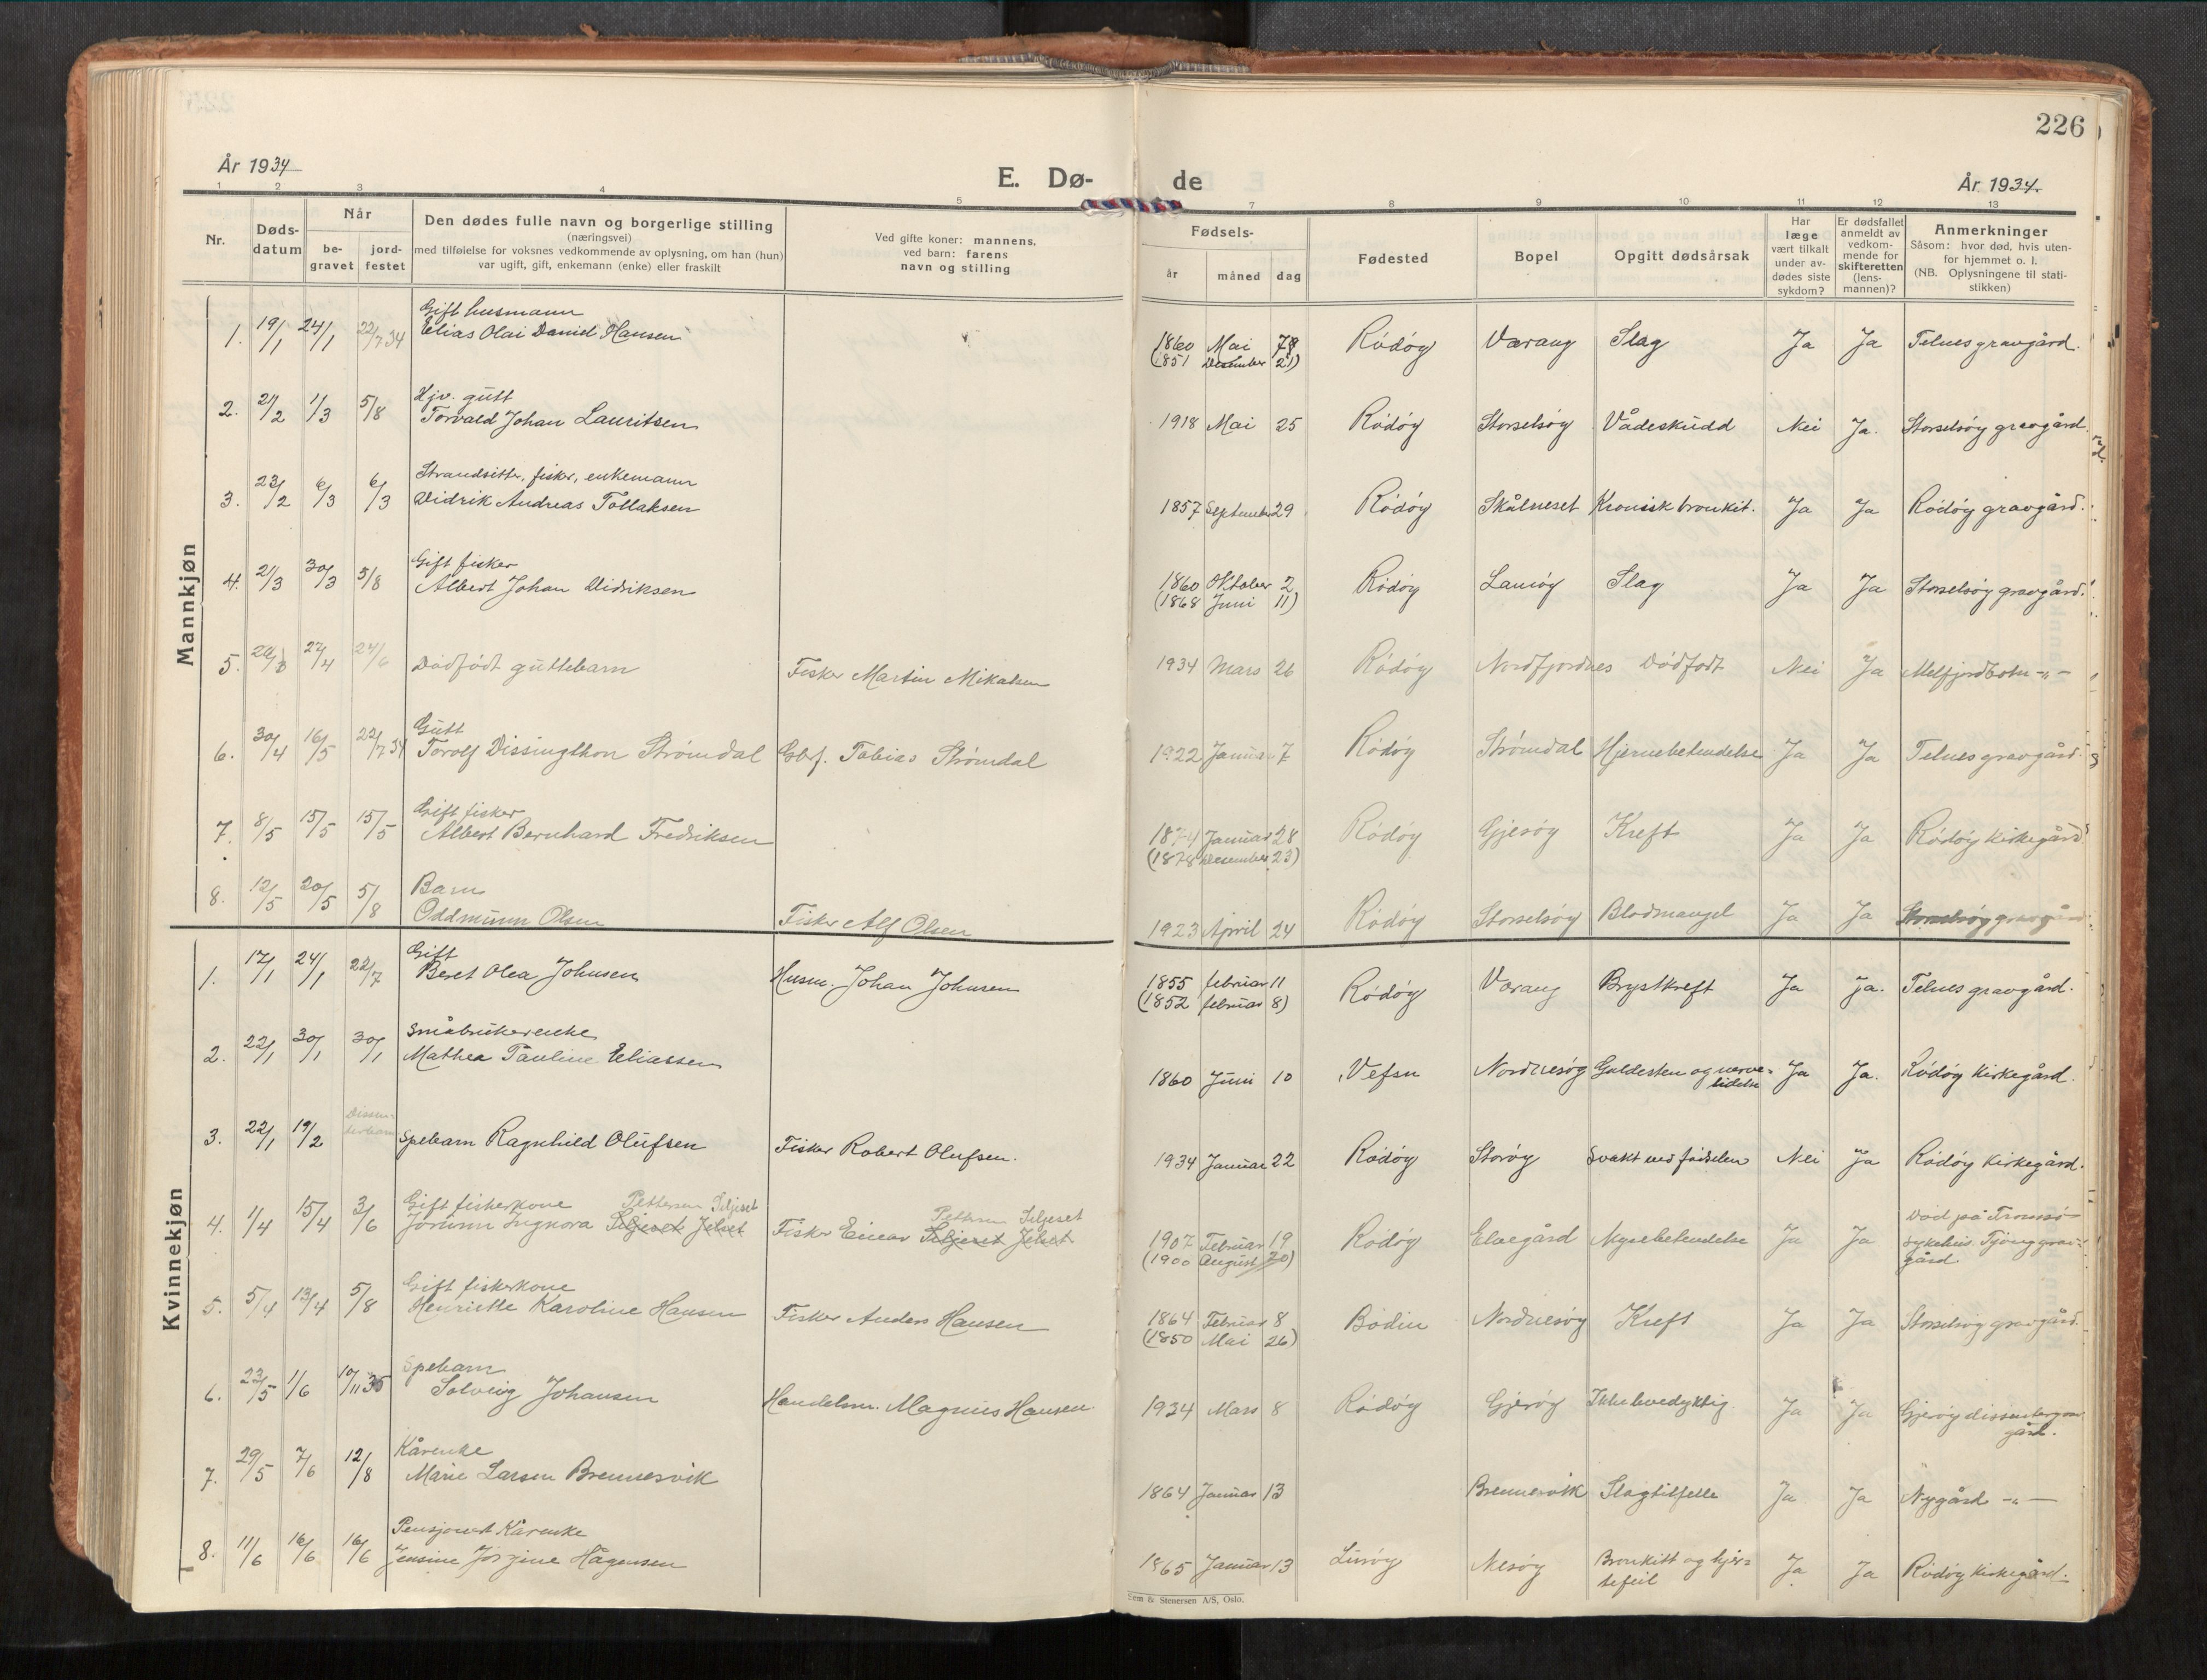 226
År 1934
E. Dø-
de
År 1934.
1 2 3 4 5 7 8 9 10 11 12 13
Nr.
Døds-
datum
Når
be-
gravet
jord-
festet
Den dødes fulle navn og borgerlige stilling
(næringsvei)
med tilføielse for voksnes vedkommende av oplysning, om han (hun)
var ugift, gift, enkemann (enke) eller fraskilt
Ved gifte koner: mannens,
ved barn: farens
navn og stilling
Fødsels-
år
måned
dag
Fødested
Bopel
Opgitt dødsårsak
Har
læge
vært tilkalt
under av-
dødes siste
sykdom?
Er dødsfallet
anmeldt av
vedkom-
mende for
skifteretten
(lens-
mannen)?
Anmerkninger
Såsom: hvor død, hvis uten-
for hjemmet o. l.
(NB. Oplysningene til stati-
stikken)
Mannkjøn
Gift husmann
1. 19/1 24/1 22/7 34 Elias Olai Daniel Hansen 1860 Mai Rödöy Værang Slag Ja Ja Telnes gravgård.
(1851 Desember 21)
Hjv. gutt
2. 21/2 1/3 5/8 Torvald Johan Lauritsen 1918 Mai 25 Rödöy Storselsöy Vådeskudd Nei Ja. Storselsöy gravgård.
Strandsitter, fisker, enkemann
3. 23/2 6/3 6/3 Didrik Andreas Tollaksen 1857 September 29 Rödöy Skålneset Kronisk bronkit. Ja Ja Rödöy gravgård.
Gift fisker
4. 21/3 30/3 5/8 Albert Johan Didriksen 1860 Oktober 2 Rödöy Slag Ja Ja Storselsöy gravgård.
(1868 Juni 11)
5. 27/4 24/6 Dödfödt guttebarn Fisker Martin Mikalsen 1934 Mars 26 Rödöy Nordfjordnes Dödfødt Nei Ja Melfjordbotn -"-
Gutt
6. 30/4 16/5 22/7 34 Torolf Dissingthon Strömdal Tobias Strömdal 1922 Januar 7 Rödöy Strömdal Hjernebetendelse Ja Ja Telnes gravgård.
Gift fisker
7. 8/5 15/5 15/5 Albert Bernhard Fredriksen 1874 Januar 28 Rödöy Gjesöy Kreft Ja Ja Rödöy kirkegård
(1878 Desember 23)
Barn
8. 12/5 20/5 5/8 Oddmunn Olsen Fisker Alf Olsen 1923 April 24 Rödöy Storselsöy Blodmangel Ja Ja Storselsöy gravgård
Kvinnekjøn
Gift
1. 17/1 24/1 22/7 Beret Olea Johnsen Husm. Johan Johnsen 1855 februar 11 Rödöy Værang Brystkreft Ja Ja. Telnes gravgård.
(1852 februar 8)
Småbrukerenke
2. 22/1 30/1 30/1 Mathea Pauline Eliassen 1860 Juni 10 Vefsn Nordnesöy Galdesten og nerve-
lidelse Ja Ja. Rödöy kirkegård.
Dissen-
terbarn
3. 22/1 19/2 Spebarn Ragnhild Olufsen Fisker Robert Olufsen. 1934 Januar 22 Rödöy Storöy Svakt ved födselen Nei Ja Rödöy kirkegård.
Gift fiskerkone Pettersen Siljeset Pettersen Siljeset
4. 1/4 15/4 3/6 Jorunn Ingnora Siljeset Jelset Fisker Einar Siljeset Jelset 1907 Februar 19 Rödöy Elvegård Nyrebetendelse Ja Ja Död på Tromsö
sykehus. Tjong grav-
gård.
(1900 August 20)
Gift fiskerkone
5. 5/4 13/4 5/8 Henriette Karoline Hansen Fisker Anders Hansen 1864 Februar 8 Bodin Nordnesöy Kreft Ja Ja Storselsöy gravgård.
(1850 Mai 26)
Spebarn
6. 23/5 1/6 17/11 35 Solveig Johansen Handelsm. Magnus Hansen 1934 Mars 8 Rödöy Gjeröy Ikke levedyktig. Ja Ja Gjeröy dissentergrav-
gård.
Kårenke
7. 29/5 7/6 12/8 Marie Larsen Brennesvik 1864 Januar 13 Brennesvik Slagtilfelle Ja Ja Nygård -"-
Pensjonert Kårenke
8. 11/6 16/6 16/6 Jensine Jörgine Hågensen 1865 Januar 13 Luröy Nesöy Bronkitt og hjer-
tefeil Ja Ja Rödöy kirkegård.
Sem & Stenersen A/S, Oslo.